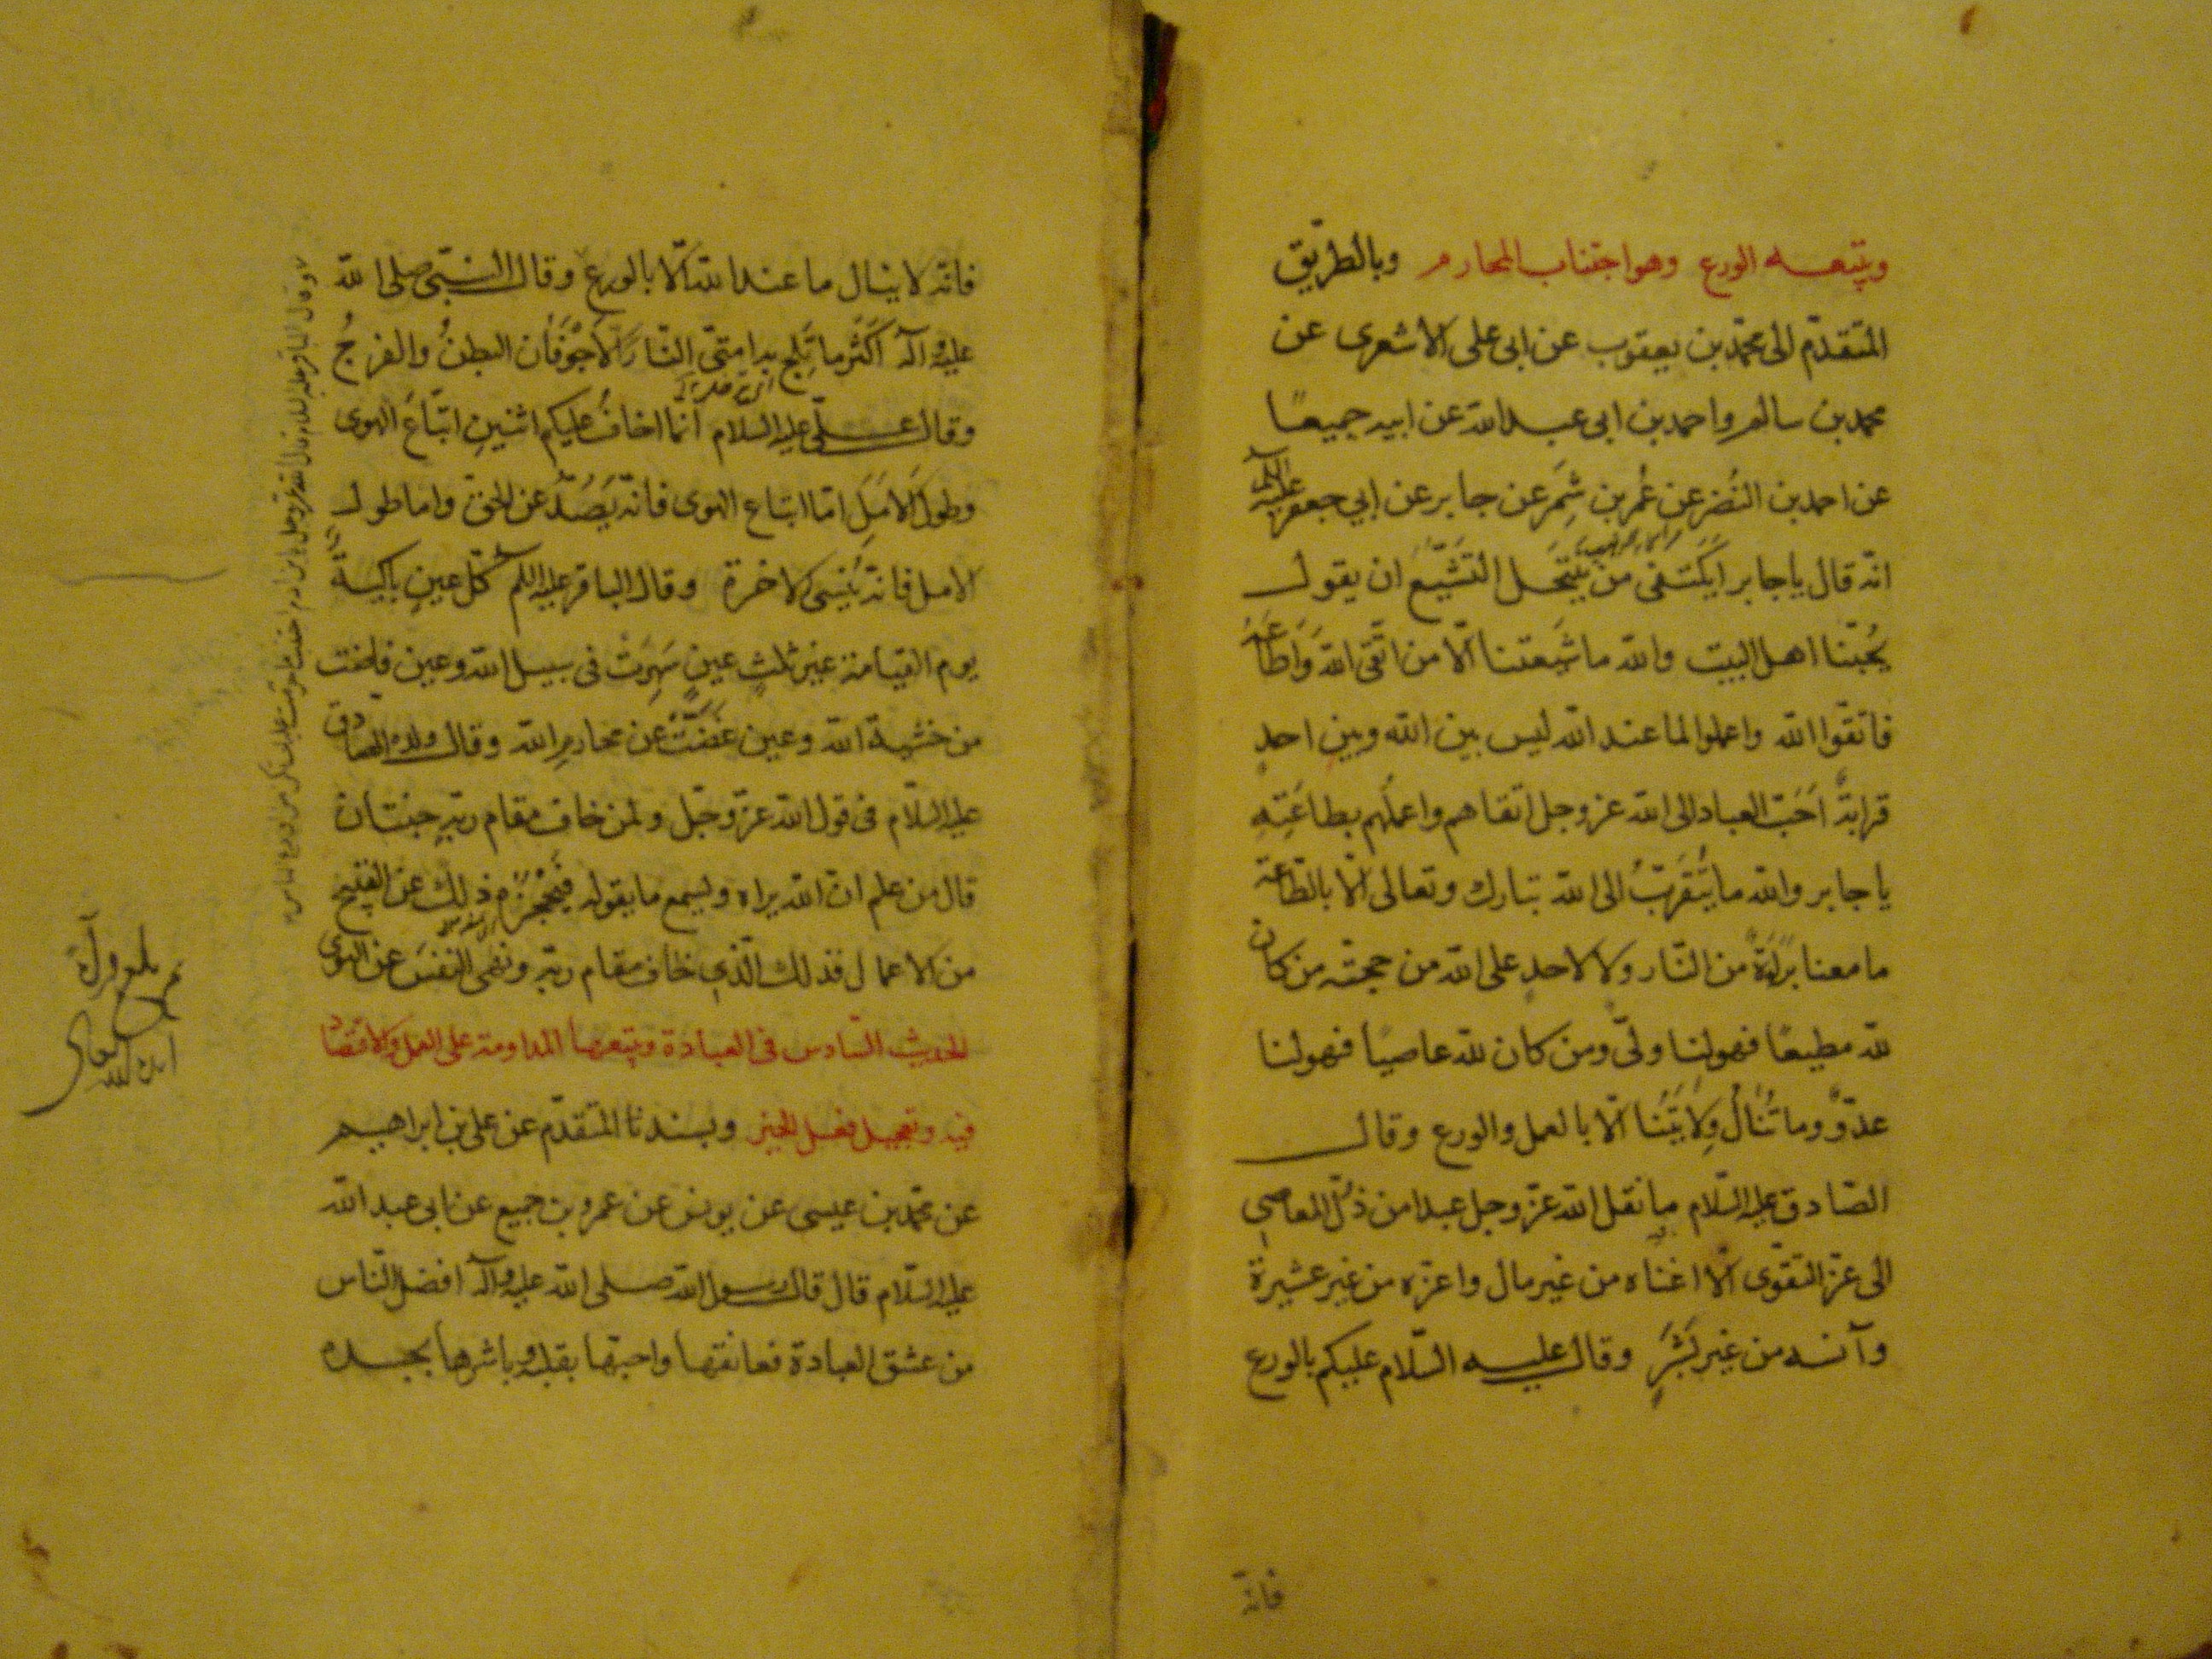 ويتبعه الورع وهو اجتناب المحارم وبالطريق
المتقدّم الى محمّد بن يعقوب عن ابى على الاشعرى عن
محمد بن سالم واحمد بن ابى عبد الله عن ابيه جميعًا
عن احمد بن النضر عن عمر بن شمر عن جابر عن ابي جعفر عليه السلم
انّه قال يا جابر ايكتفى من ينتحل التشيّع ان يقول
بحُبّنا اهل البيت والله ما شيعتنا الّا من اتّقى الله وَاَطَاعَهُ
فاتّقوا الله واعملوا لما عند الله ليس بين الله وبين احدٍ
قرابةٌ اَحَبّ العباد الى الله عز وجل اتقاهم واعملُهم بطاعَتِهِ
يا جابر والله ما يُتَقَرّبُ الى الله تبارك وتعالى الّا بالطّاعة
ما معنا براءةٌ من النّار ولا لاحدٍ على الله من حجّة من كان
لله مطيعًا فهو لنا ولىّ ومن كان لله عاصيًا فهو لنا
عدوّ وما تُنالُ وِلايَتُنا الّا بالعمل والورع وقال
الصّادق عليه السّلام ما نقل الله عزّ وجل عبدا من ذلّ المعاصي
الى عزّ التقوى الّا اغناه من غير مال واعزّه من غير عشيرة
وآنسه من غير بَشَرٍ وقال عليه السّلام عليكم بالورع
فانّه
فانّه لا ينال ما عند الله الّا بالورع وقال النبىّ صلى الله
عليه وآله اكثر ما تلج به امتى النّار الاجوفان البطنُ والفرجُ
وقال علىّ عليه السلام انّما اخافُ عليكم اثنينِ اتّباعَ الهوى
وطولَ الامَلِ امّا اتباع الهوى فانّه يَصُدّ عن الحقّ واما طول
الامل فانّه يُنسى الاخرة وقال الباقر عليه السلم كلّ عينٍ باكيةٌ
يوم القيامة غير ثلثٍ عينٍ سَهِرَتْ فى سبيل الله وعين فاضت
من خشية الله وعين غضّتْ عن محارمِ الله وقال ولده الصادق
عليه السّلام فى قول الله عزّ وجلّ ولمن خاف مقام ربّه جنتان
قال من علم انّ الله يراه ويسمع ما يقوله فيحجزه ذلك عن القبيح
من الاعمال فذلك الّذي خاف مقام ربّه ونهى النفسَ عن الهوى
الحديث السّادس فى العبادة ويتبعها المداومة على العمل والاقتصاد
فيه وتعجيل فعل الخير وبسندنا المتقدّم عن على بن ابراهيم
عن محمّد بن عيسى عن يونس عن عمرو بن جميع عن ابى عبد الله
عليه السّلام قال قال رسول الله صلى الله عليه وآله افضل النّاس
من عشق العبادة فعانقها واحبّها بقلبه وباشرها بجسده
ايده الله